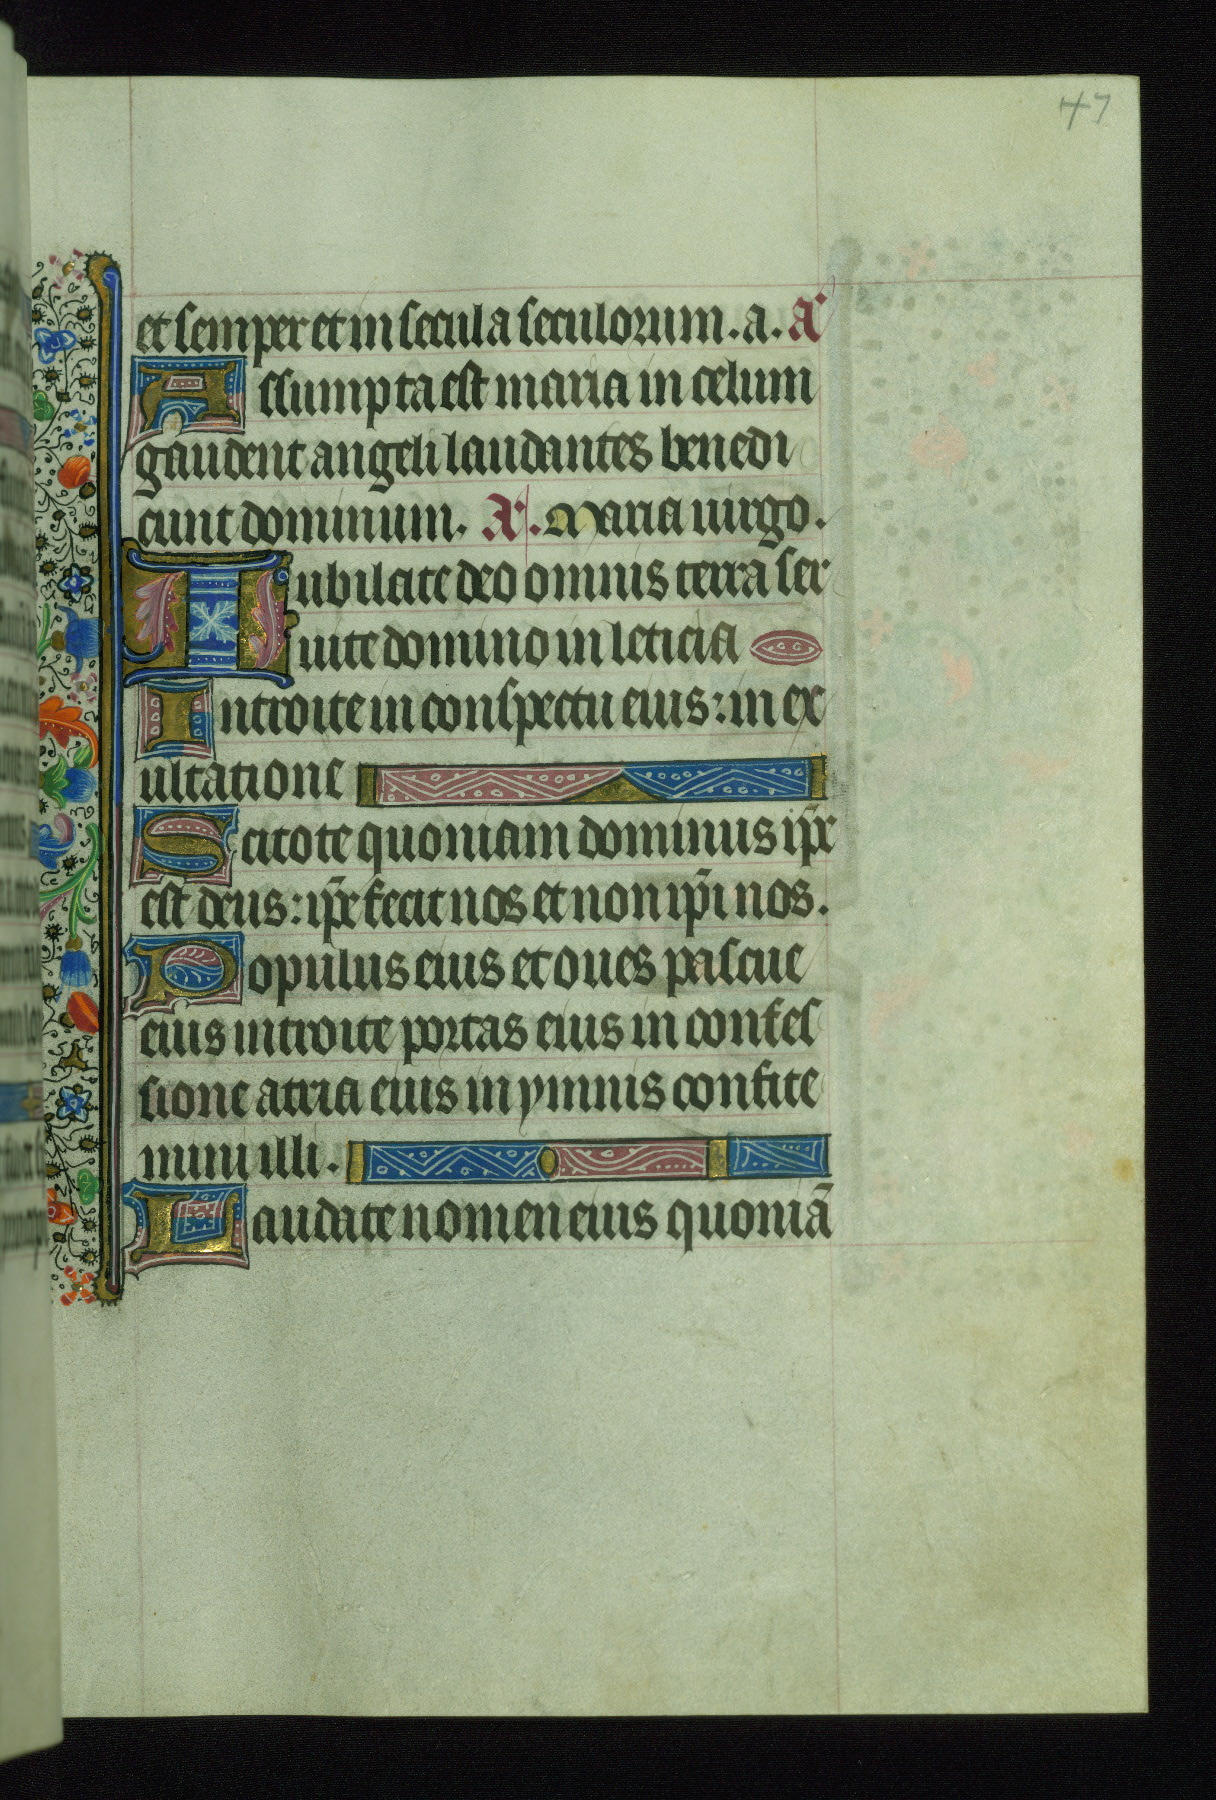 47
et semper et in secula seculorum. a. a̅
Assumpta est maria in celum
gaudent angeli laudantes benedi
cunt dominum. a̅. Maria uirgo.
Iubilate deo omnis terra ser
uite domino in leticia
Introite in conspectu eius: in ex
ultatione
Scitote quoniam dominus ip̅e
est deus: ip̅e fecit nos et non ip̅i nos.
Populus eius et oues pascue
eius introite portas eius in confes
sione atria eius in ymnis confite
mini illi.
Laudate nomen eius quoniā